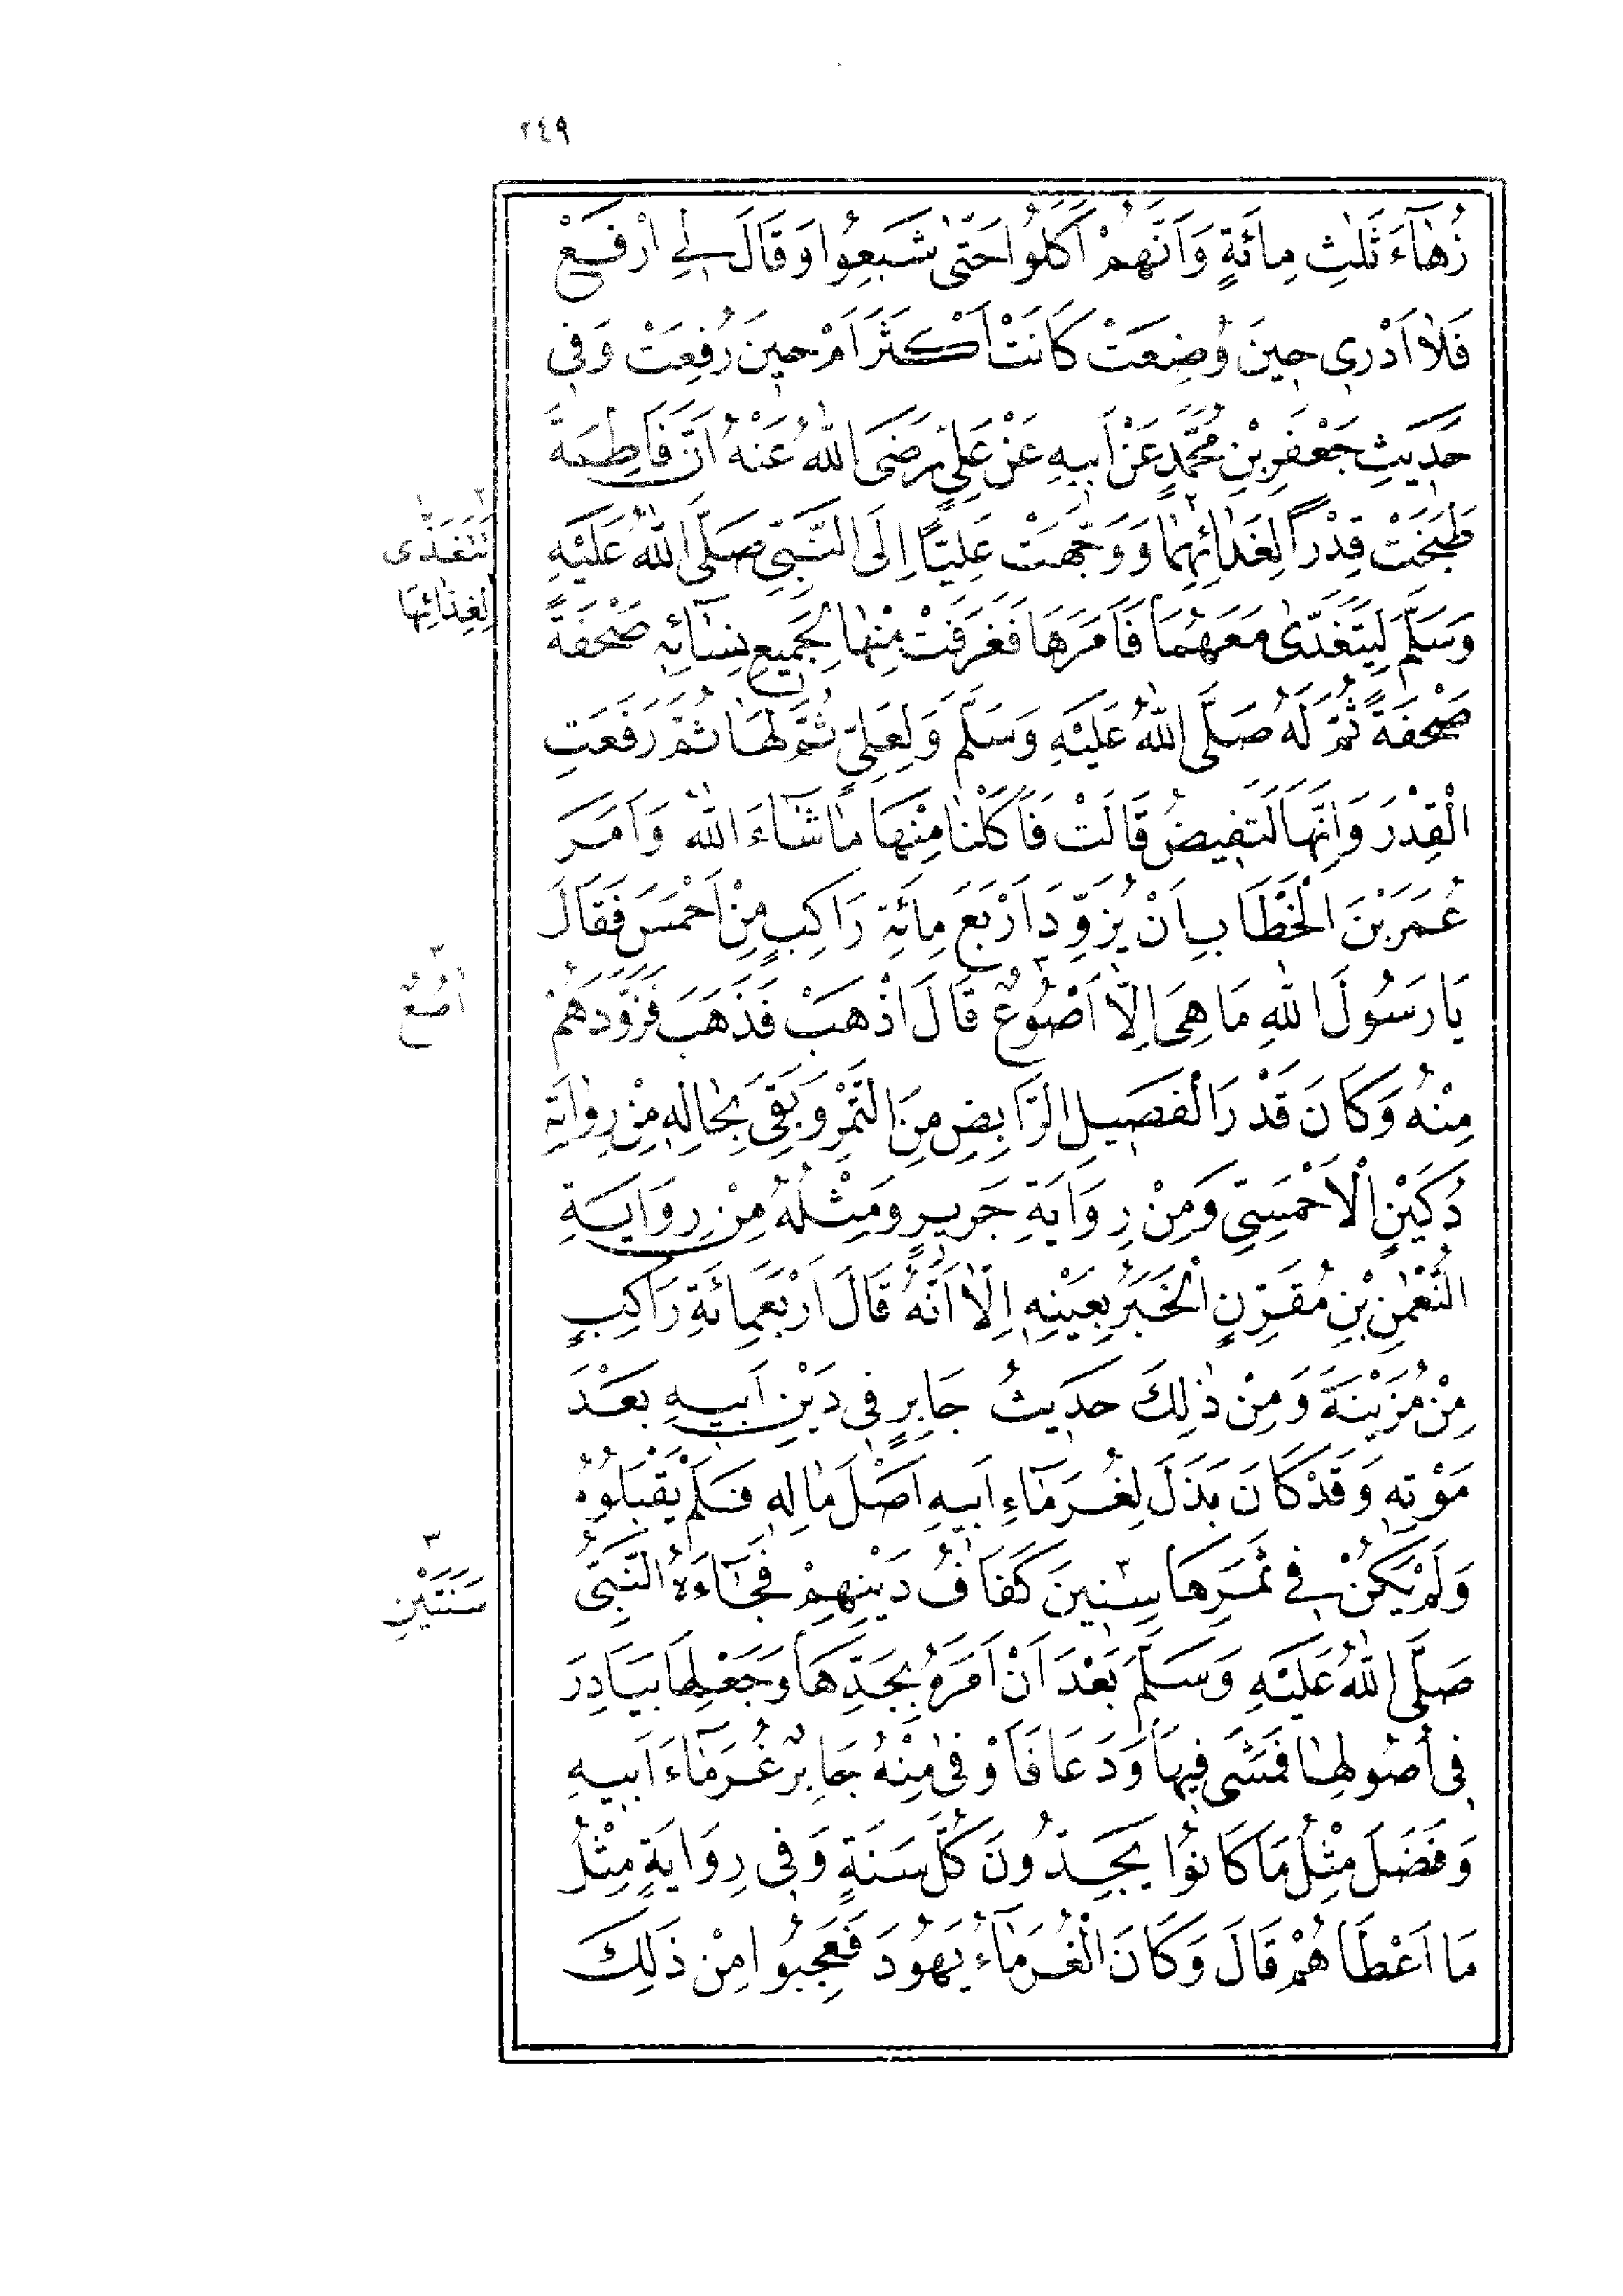 ٢٤٩
زُهَاۤءَ ثَلٰثِ مِائَةٍ وَاَنَّهُمْ اَكَلُوا حَتّٰى شَبِعُوا وَقَالَ لِي اِرْفَعْ
فَلَا اَدْرِي حِينَ وُضِعَتْ كَانَتْ اَكْثَرَ اَمْ حِينَ رُفِعَتْ وَفِي
حَدِيثِ جَعْفَرِ بْنِ مُحَمَّدٍ عَنْ اَبِيهِ عَنْ عَلِيٍّ رَضِىَ اللّٰهُ عَنْهُ اَنَّ فَاطِمَةَ
طَبَخَتْ قِدْرًا لِغَدَائِهِمَا وَوَجَّهَتْ عَلِيًّا اِلَى النَّبِيِّ صَلَّى اللّٰهُ عَلَيْهِ
وَسَلَّمَ لِيَتَغَدّٰى مَعَهُمَا فَاَمَرَهَا فَغَرَفَتْ مِنْهَا لِجَمِيعِ نِسَائِهِ صَحْفَةً
صَحْفَةً ثُمَّ لَهُ صَلَّى اللّٰهُ عَلَيْهِ وَسَلَّمَ وَلِعَلِيٍّ ثُمَّ لَهَا ثُمَّ رَفَعَتِ
الْقِدْرَ وَاِنَّهَا لَتَفِيضُ قَالَتْ فَاَكَلْنَا مِنْهَا مَا شَاۤءَ اللّٰهُ وَاَمَرَ
عُمَرَ بْنَ الْخَطَّابِ اَنْ يُزَوِّدَ اَرْبَعَ مِائَةِ رَاكِبٍ مِنْ اَحْمَسَ فَقَالَ
يَا رَسُولَ اللّٰهِ مَا هِىَ اِلَّا اَصْوُعٌ قَالَ اذْهَبْ فَذَهَبَ فَزَوَّدَهُمْ
مِنْهُ وَكَانَ قَدْرَ الْفَصِيلِ الرَّابِضِ مِنَ التَّمْرِ وَبَقِىَ بِحَالِهِ مِنْ رِوَايَةِ
دُكَيْنٍ الْاَحْمَسِيِّ وَمِنْ رِوَايَةِ جَرِيرٍ وَمِثْلُهُ مِنْ رِوَايَةِ
النُّعْمٰنِ بْنِ مُقَرِّنٍ الْخَبَرُ بِعَيْنِهِ اِلَّا اَنَّهُ قَالَ اَرْبَعَمِائَةِ رَاكِبٍ
مِنْ مُزَيْنَةَ وَمِنْ ذٰلِكَ حَدِيثُ جَابِرٍ فِي دَيْنِ اَبِيهِ بَعْدَ
مَوْتِهِ وَقَدْ كَانَ بَذَلَ لِغُرَمَاۤءِ اَبِيهِ اَصْلَ مَالِهِ فَلَمْ يَقْبَلُوهُ
وَلَمْ يَكُنْ فِي ثَمَرِهَا سِنِينَ كَفَافُ دَيْنِهِمْ فَجَاۤءَهُ النَّبِيُّ
صَلَّى اللّٰهُ عَلَيْهِ وَسَلَّمَ بَعْدَ اَنْ اَمَرَهُ بِجَدِّهَا وَجَعْلِهَا بَيَادِرَ
فِي اُصُولِهَا فَمَشَى فِيهَا وَدَعَا فَاَوْفٰى مِنْهُ جَابِرٌ غُرَمَاۤءَ اَبِيهِ
وَفَضَلَ مِثْلُ مَا كَانُوا يَجِدُّونَ كُلَّ سَنَةٍ وَفِي رِوَايَةٍ مِثْلُ
مَا اَعْطَاهُمْ قَالَ وَكَانَ الْغُرَمَاۤءُ يَهُودَ فَعَجِبُوا مِنْ ذٰلِكَ
٢
تَتَغَدّٰى
لِغِذَائِهَا
٣
اٰصُعٌ
٣
سَنَتَيْنِ